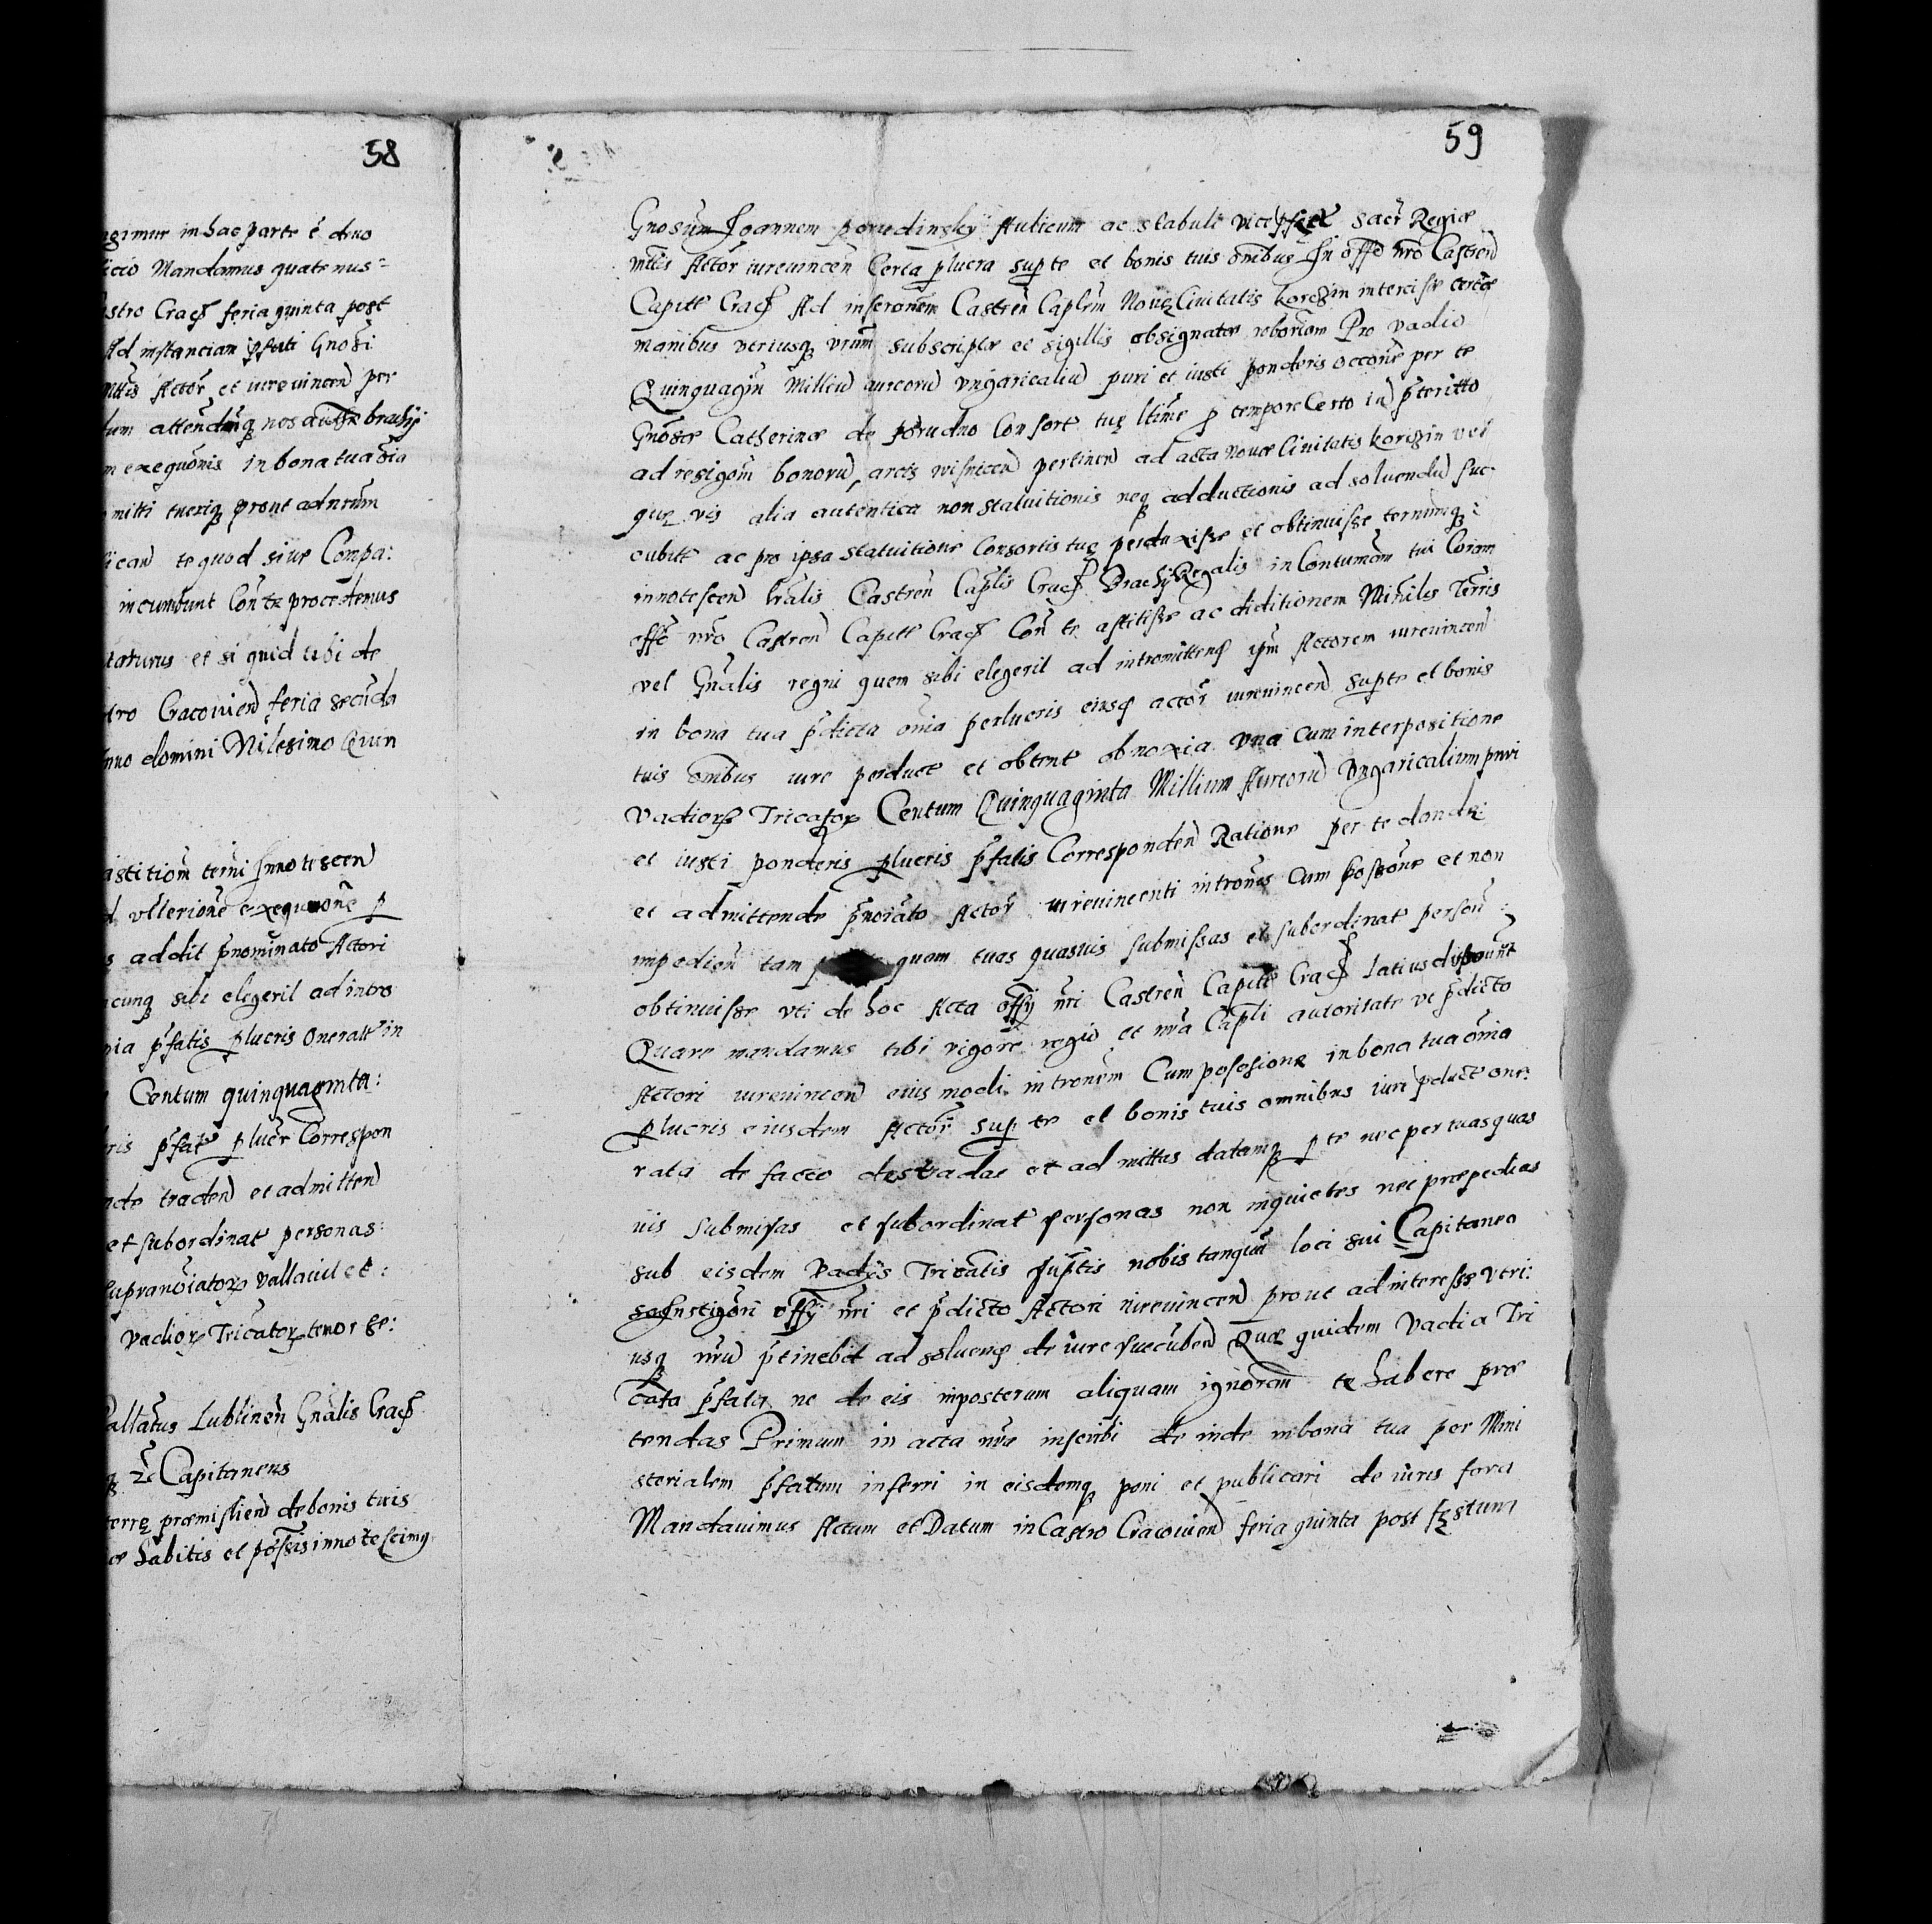 58
ngimur in hac parte è duo
icio Mandamus quatenus
astro Crac feria quinta post
Ad instanciam pfati Gnosi
Mttis Actor et iurevincen per
dum attendeng nos
m exequonis in bona tua oia
mitti tuerig prout ad nrum
ican te quod siue Compa:
incumbunt Con te procedemus
taturus et si quid tibi de
tro Cracouien feria secuda
Anno domini Milesimo Quin
astitiom terni Innotescen
d vlterione exequone p
s addit pnominato Actori
cunq sibi elegeril ad intro
nia pfatis plucris Oneratt in
Centum quinquaginta:
ris pfat plucr Correspon
nde traden et admitten
et subordinat personas:
vallauil et:
Vadior Tricator tenor
Pallatus Lublinen Gnalis Crac
q zc Capitaneus
terre præmislien de bonis tuis
ce habitis et possis innotescimq
59
Gnosum Joannem porudinsky Aulicum ac stabuli sacr Regiæ
mttis Actor iurevincen Certa plucra sup te et bonis tuis omibus In offo nro Castren
Capitt Crac Ad inscronem Castren Caplem Nouę Ciuitatis korczin intercisæ certæ
manibus vtriusq vrum subscriptæ et sigillis obsignatæ roboriom Pro vadio
Quinquagin Milliu aureoru vngaricaliu puri et iusti ponderis occone per te
Gnosæ Catherinæ de porudno Consort tuę ltime p tempore Certo in pterito
ad resigom bonoru arcis wisnicen pertinen ad acta nouæ Ciuitatis korczin vel
quę vis alia autentica non statuitionis neq adductionis ad soluendu suc-
cubitt ac pro ipsa statuitione Consortis tuę perduxisse et obtinuisse ternumq:
innotescen Gralis Castren Caplis Crac Brachy Regalis in Contumom tui Coram
offo nro Castren Capitt Crac Con te astitisse ac aditionem Minilis Terris
vel Gnalis regni quem sibi elegeril ad intromittens ipm Actorem iurevincen
in bona tua pdicta omia perlucris eiusq actor iurevincen supte et bonis
tuis omibus iure perduct et obtent obnoxia vna Cum interpositione
Vadiorp Tricator Centum Quinquaginta Millium Aureoru Vngaricalium puri
et iusti ponderis plucris pfatis Corresponden Ratione per te dondę:
et admittendę pnoiato Actor iurevincenti intromes Cum possone et non
impedien tam p quam tuas quasuis submissas et subordinat person:
obtinuisse vti de hoc Acta offy nri Castren Capitt Crac latius disponunt
Quare mandamus tibi vigore regio et nra Capli autoritate vt pdicto
Actori iurevincen eius modi intronem Cum posesione in bona tua omia
plucris eiusdem Actor sup te et bonis tuis omnibus iure pduct one:
rata de facto des tradas et admittas datamq p te nec per tuas quas
uis submisas et subordinat personas non inquietes nec præpedias
sub eisdem Vadys Tricatis suptis nobis tanquam loci sui Capitaneo
Instigori offy nri et pdicto Actori iurevincen prout ad interesse vtri:
usq nrm ptinebit ad soluens de iure succuben Quæ quidem Vadia Tri
cata pfata ne de eis inposterum aliquam ignoram te habere præ
tendas Primum in acta nra inscribi de inde in bona tua per Mini
sterialem pfatum inferri in eisdemq poni et publicari de iuris fora
Mandauimus Actum et Datum in Castro Cracouien feria quinta post fęstum